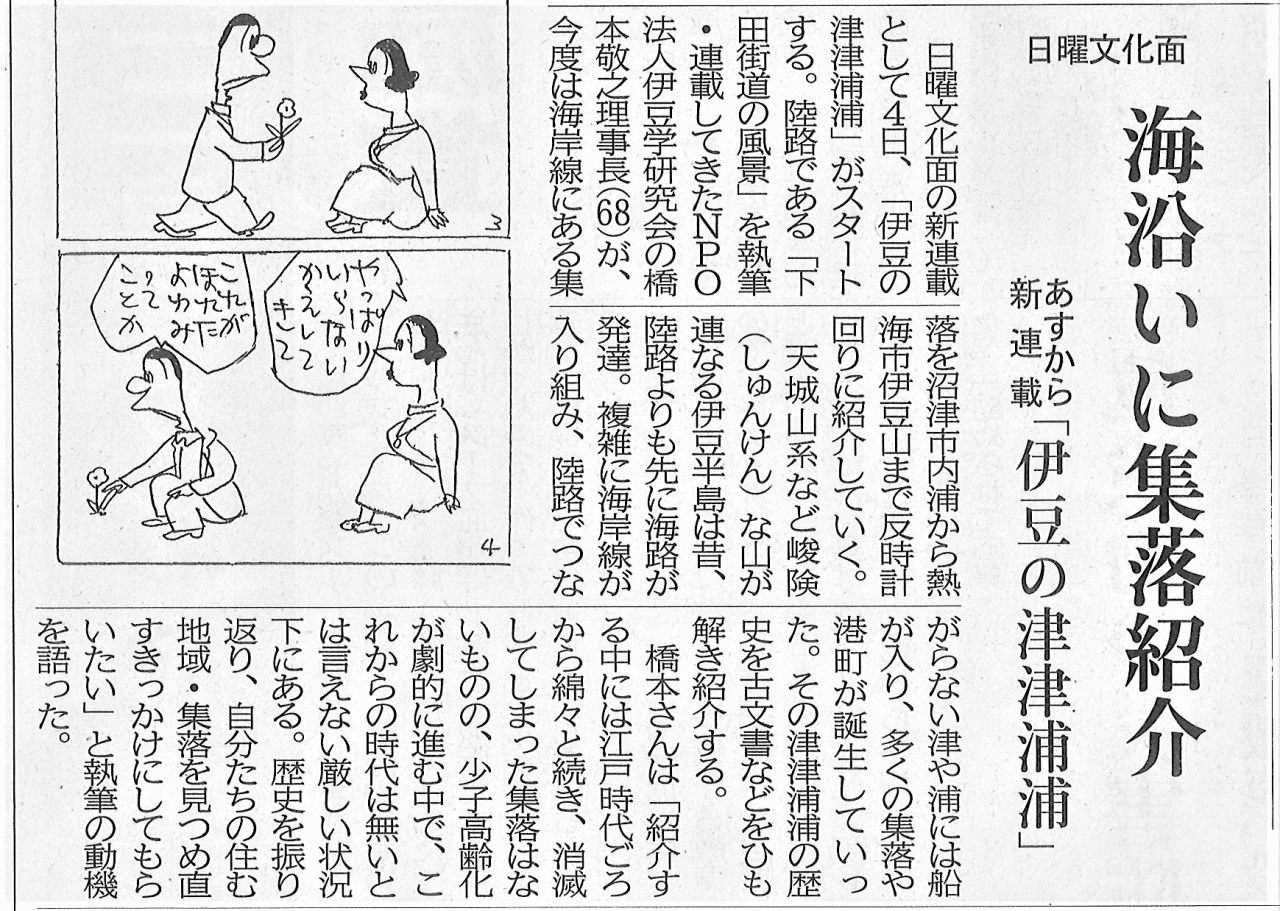 日曜文化面
海沿いに集落紹介
あすから
新連載
「伊豆の津津浦浦」
日曜文化面の新連載
として4日、「伊豆の
津津浦浦」がスタート
する。陸路である「下
田街道の風景」を執筆
・連載してきたNPO
法人伊豆学研究会の橋
本敬之理事長(68)が、
今度は海岸線にある集
落を沼津市内浦から熱
海市伊豆山まで反時計
回りに紹介していく。
天城山系など峻険
(しゅんけん)な山が
連なる伊豆半島は昔、
陸路よりも先に海路が
発達。複雑に海岸線が
入り組み、陸路でつな
がらない津や浦には船
が入り、多くの集落や
港町が誕生していっ
た。その津津浦浦の歴
史を古文書などをひも
解き紹介する。
橋本さんは「紹介す
る中には江戸時代ごろ
から綿々と続き、消滅
してしまった集落はな
いものの、少子高齢化
が劇的に進む中で、こ
れからの時代は無いと
は言えない厳しい状況
下にある。歴史を振り
返り、自分たちの住む
地域・集落を見つめ直
すきっかけにしてもら
いたい」と執筆の動機
を語った。
3
やっぱり
いらない
かえして
きて
これが
ほれた
よわみ
って
ことか
4